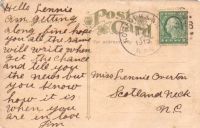 Hello Lennie
Post Card
Am getting
along fine hope
you all the same
will write when
get the chance
and tell you
the news but
you know
how it is
when your
are in love
Jim
Miss Lennie Overton
Scotland Neck
N.C.